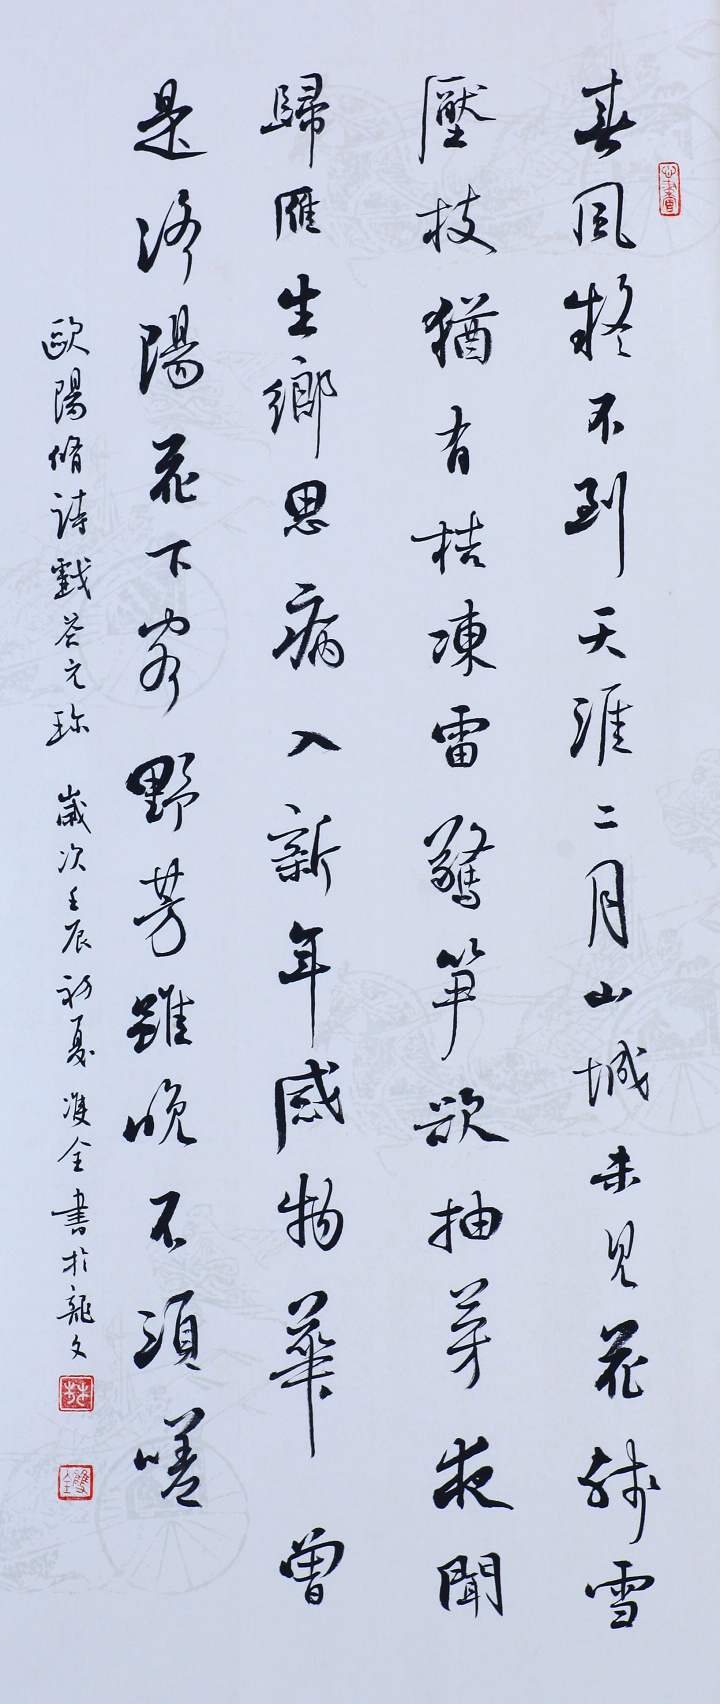 春風疑不到天涯二月山城未見花殘雪
壓枝猶有桔凍雷驚笋欲抽芽夜聞
歸雁生鄉思病入新年感物華曾
是洛陽花下客野芳雖晚不須嗟
歐陽脩詩戲答元珍 歲次壬辰初夏雙全書於龍文
林
雙全